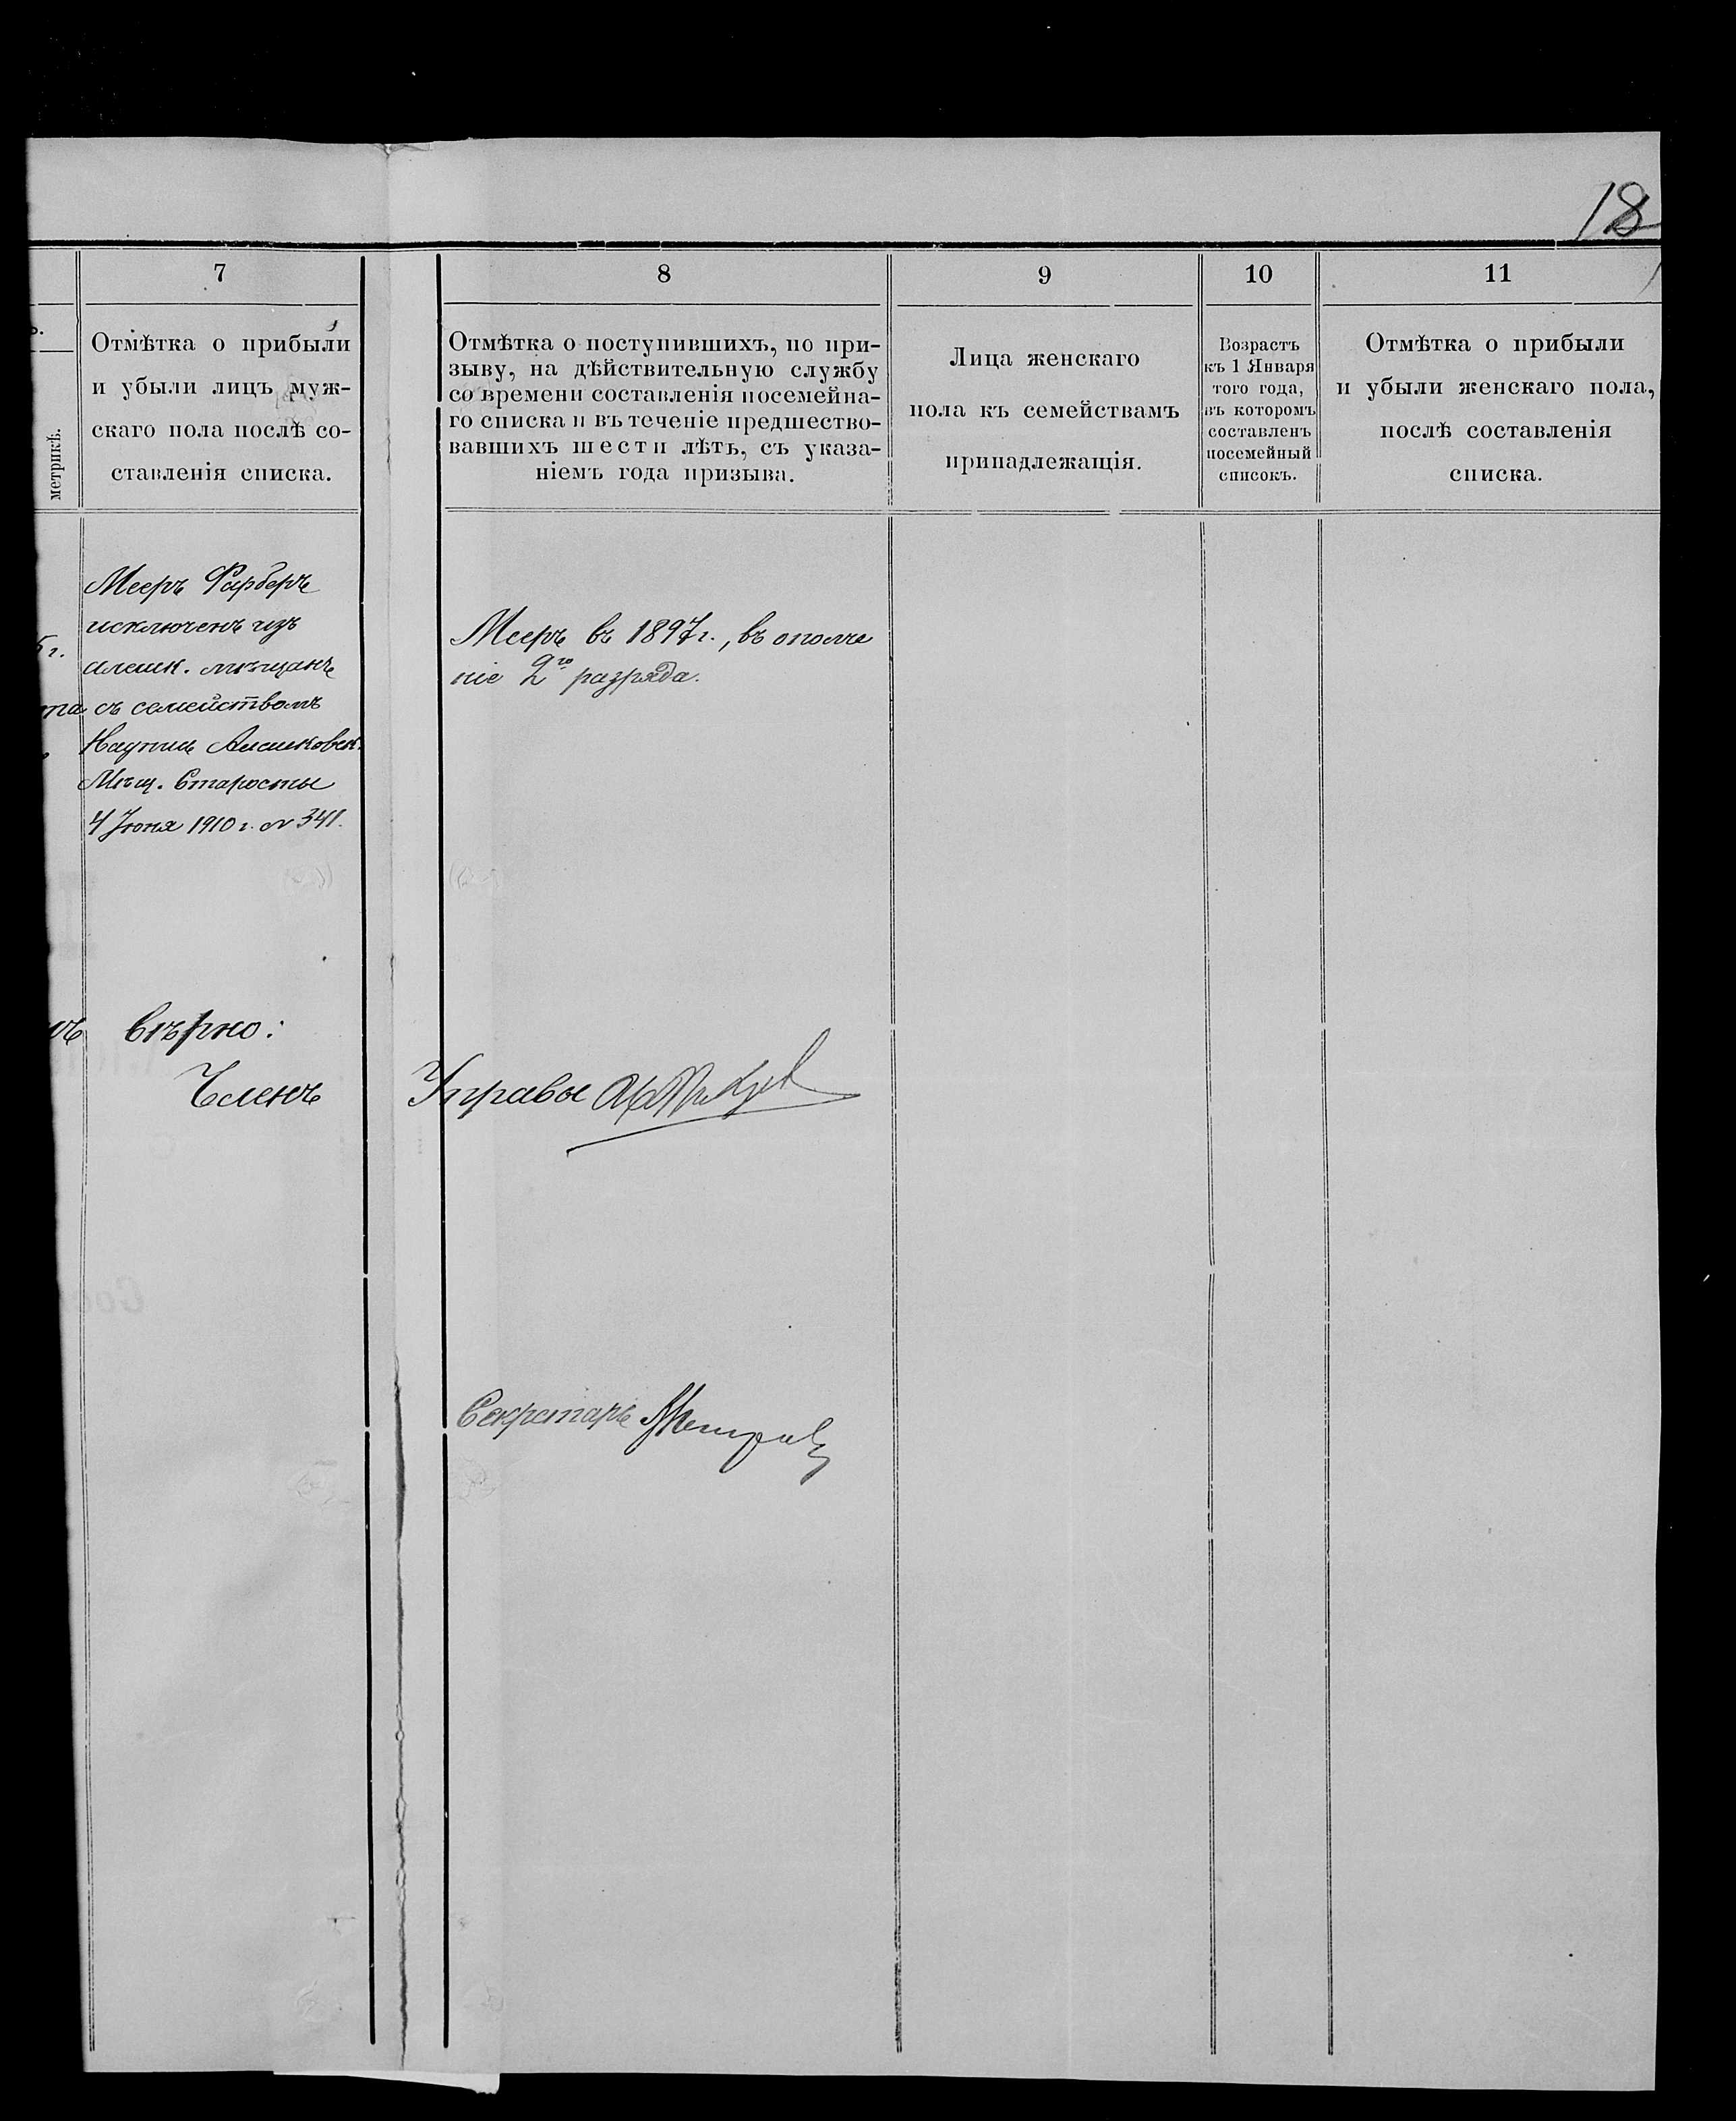 18
7
8
9
10
11
метрикѣ.
Отмѣтка о прибыли
и убыли лицъ муж-
скаго пола послѣ со-
ставленія списка.
Отмѣтка о поступившихъ, по при-
зыву, на дѣйствительную службу
со времени составленія посемейна-
го списка и въ теченіе предшество-
вавшихъ шести лѣтъ, съ указа-
ніемъ года призыва.
Лица женскаго
пола къ семействамъ
принадлежащія.
Возрастъ
къ 1 Января
того года,
въ которомъ
составленъ
посемейный
списокъ.
Отмѣтка о прибыли
и убыли женскаго пола,
послѣ составленія
списка.
Мееръ Фарберъ
исключенъ изъ
алешк. мѣщанъ
съ семействомъ
Надпись Алешковск.
Мѣщ. Старосты
4 Іюня 1910 г. № 341.
5 г.
та
Мееръ въ 1897 г., въ ополче
ніе 2го разряда.
Вѣрно:
Членъ Управы
Секретарь